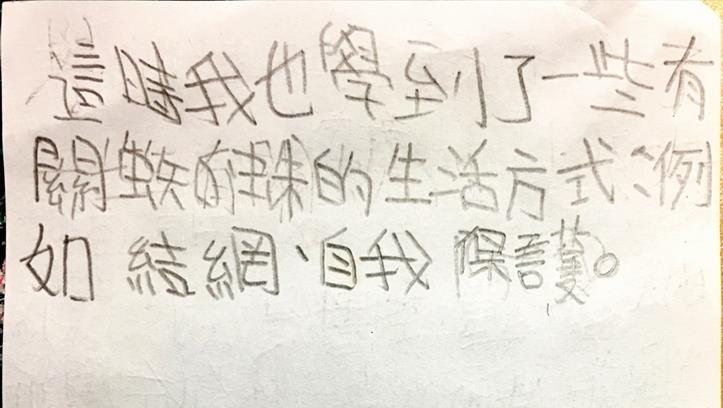 這時我也學到了一些有
關蜘蛛的生活方式:例
如結網、自我保護。